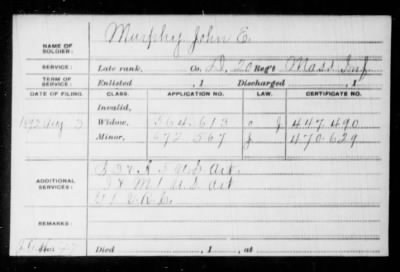 NAME OF SOLDIER: Murphy, John E.
SERVICE: Late rank, Co. D, 20 Reg't Mass Inf.
TERM OF SERVICE: Enlisted , 1 Discharged , 1
DATE OF FILING. CLASS. APPLICATION NO. LAW. CERTIFICATE NO.
Invalid,
1892 Aug 3 Widow, 564.613 447.490
Minor, 672.567 470.629
ADDITIONAL SERVICES:
U.S. Art.
U.S. Art
REMARKS:
Died , 1 , at